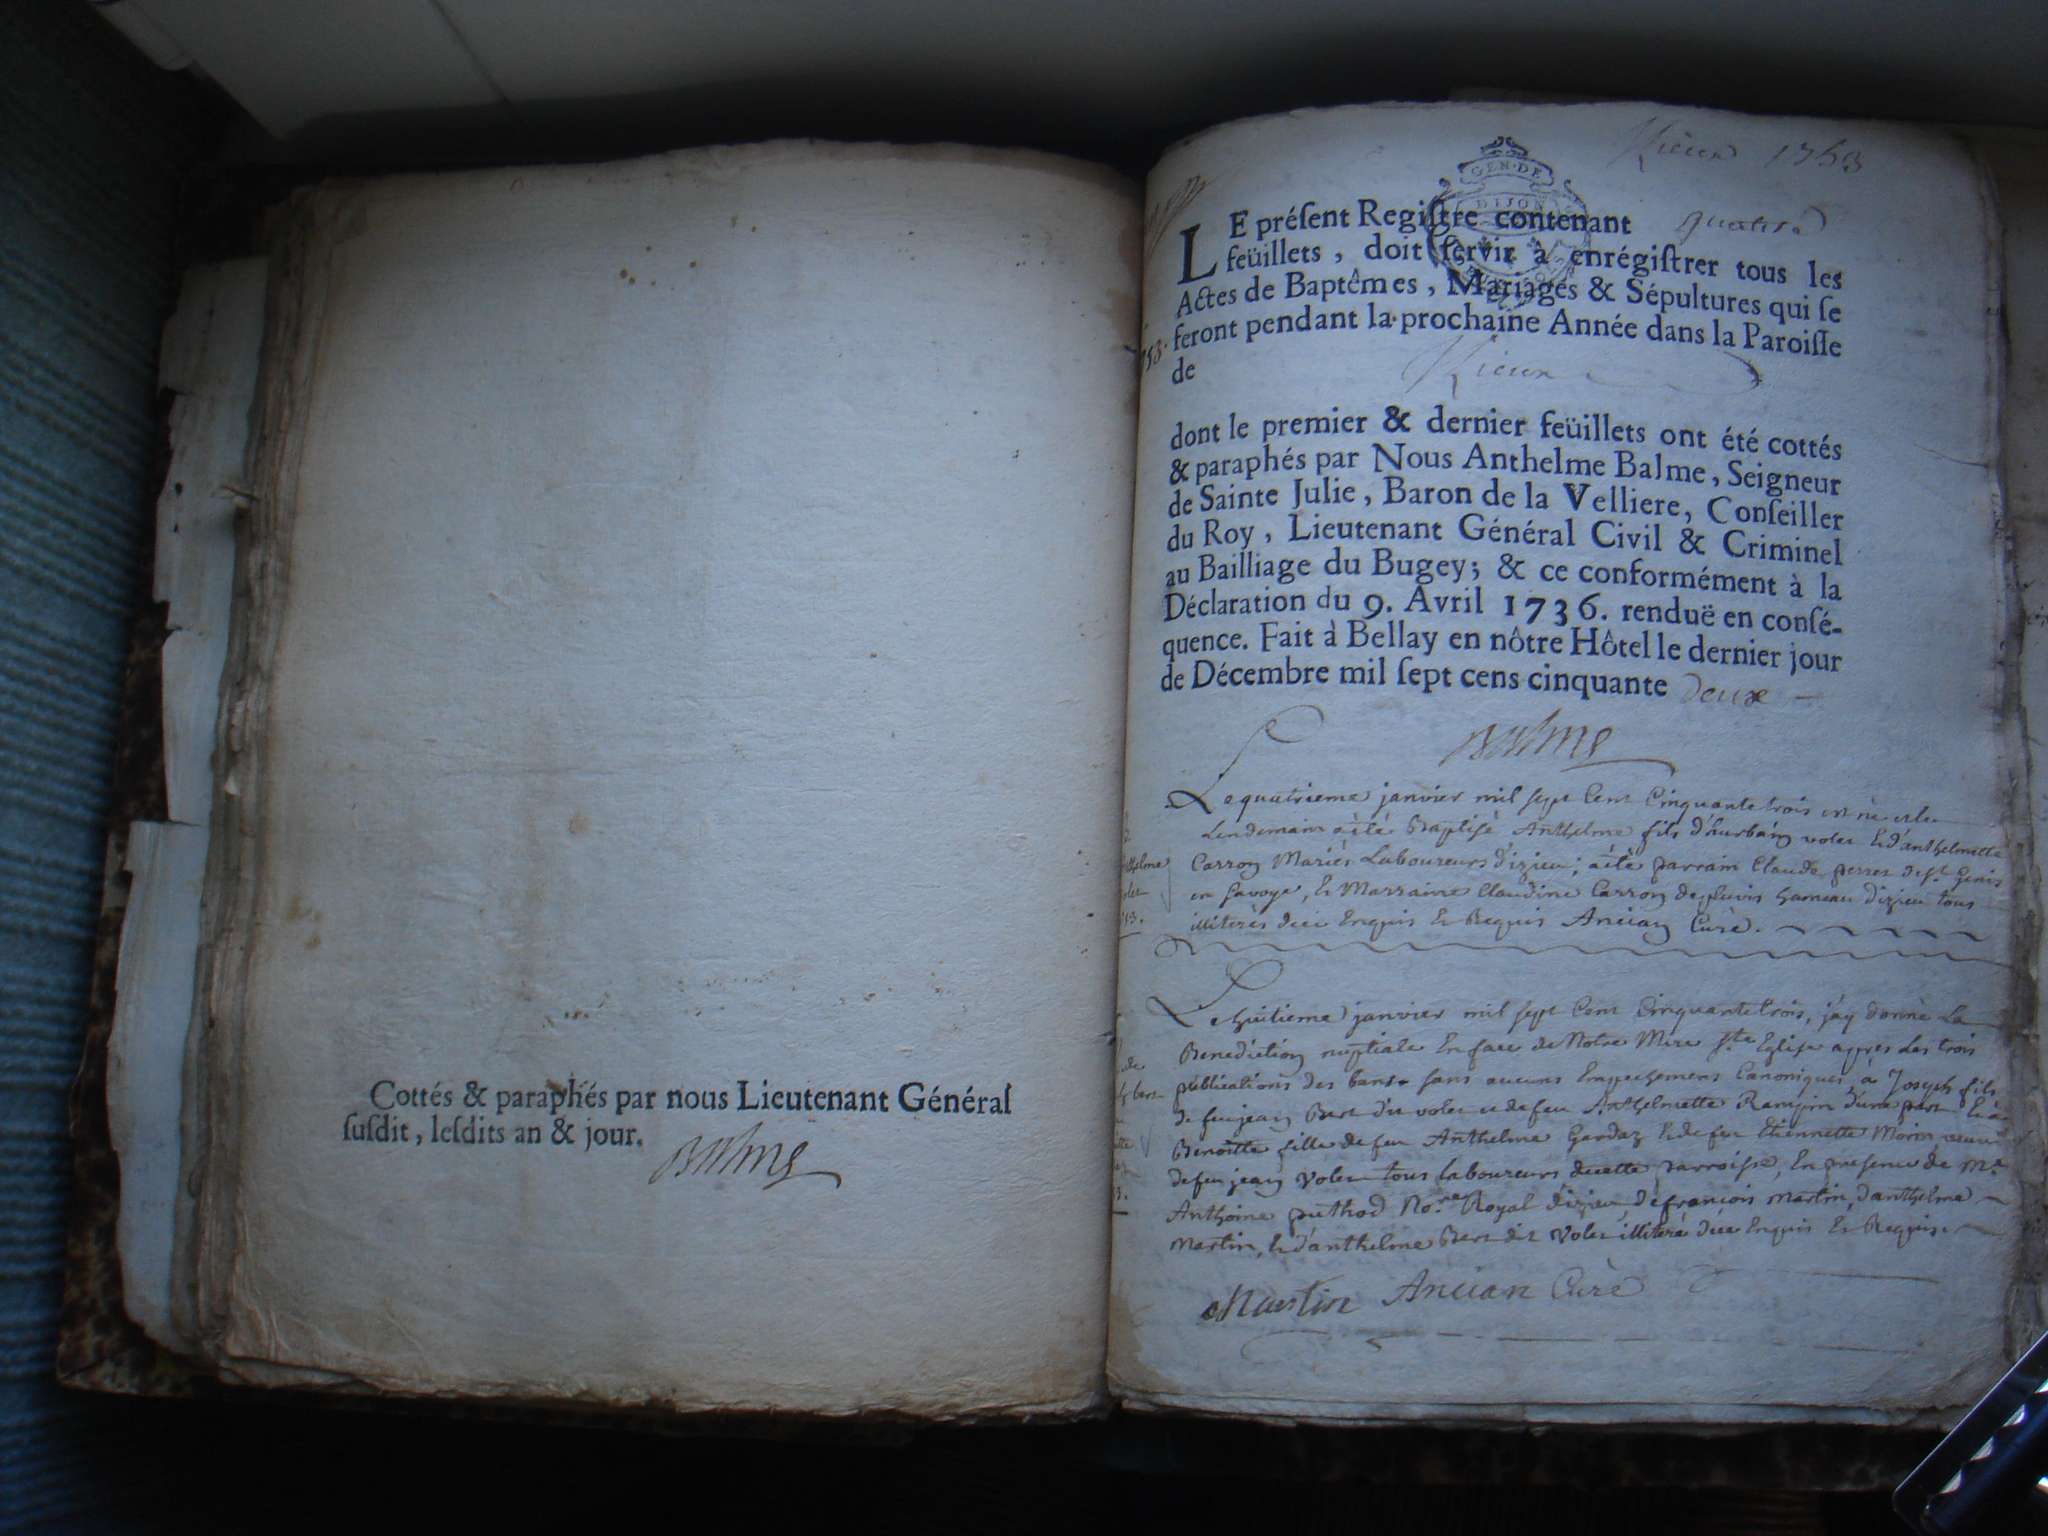 Cottés & paraphés par nous Lieutenant Général
ſuſdit, leſdits an & jour.
Balme
1753
GEN·DE
DIJON
LE préſent Regiſtre contenant quatre
feüillets, doit ſervir à enrégiſtrer tous les
Actes de Baptêmes, Mariages & Sépultures qui ſe
feront pendant la prochaine Année dans la Paroiſſe
de
dont le premier & dernier feüillets ont été cottés
& paraphés par Nous Anthelme Balme, Seigneur
de Sainte Julie, Baron de la Velliere, Conſeiller
du Roy, Lieutenant Général Civil & Criminel
au Bailliage du Bugey; & ce conformément à la
Déclaration du 9. Avril 1736. renduë en conſé-
quence. Fait à Bellay en nôtre Hôtel le dernier jour
de Décembre mil ſept cens cinquante deux
Balme
Le quatrieme janvier mil sept Cent Cinquante trois est nè et le
Lendemain a ètè Baptisè Anthelme fils d'hurbain volet & d'anthelmette
Carron Mariès Laboureurs d'izieu; a ètè parrain Claude perret de st. Genis
en savoye, & Marraine Claudine Carron de pluvis hameau d'izieu tous
illiterès de ce Enquis & Requis Ancian Curè.
Le huitieme janvier mil sept Cent Cinquante trois, j'ay donnè La
Benediction nuptiale En face de Notre Mere Ste Eglise apprès Les trois
publications des bans sans aucuns Empechemens Canoniques, à Joseph fils
de feu jean Bert dit volet et de feu Anthelmette Rampin d'une part & à
Benoitte fille de feu Anthelme Gardaz & de feu Etiennette Morin veuve
de feu jean Volet tous laboureurs de cette parroisse, En presence de Mr.
Anthoine puthod No.re Royal d'izieu de françois Martin, d'anthelme
Martin, & d'anthelme Bert dit Volet illiterè de ce Enquis & Requis.
Martin Ancian Curè